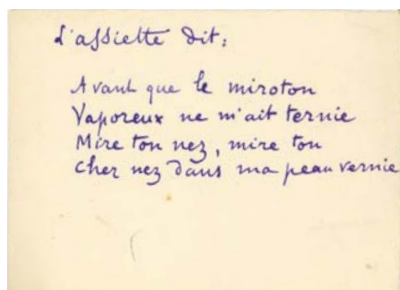 L'assiette dit :
Avant que le miroton
Vaporeux ne m'ait ternie
Mire ton nez, mire ton
Cher nez dans ma peau vernie